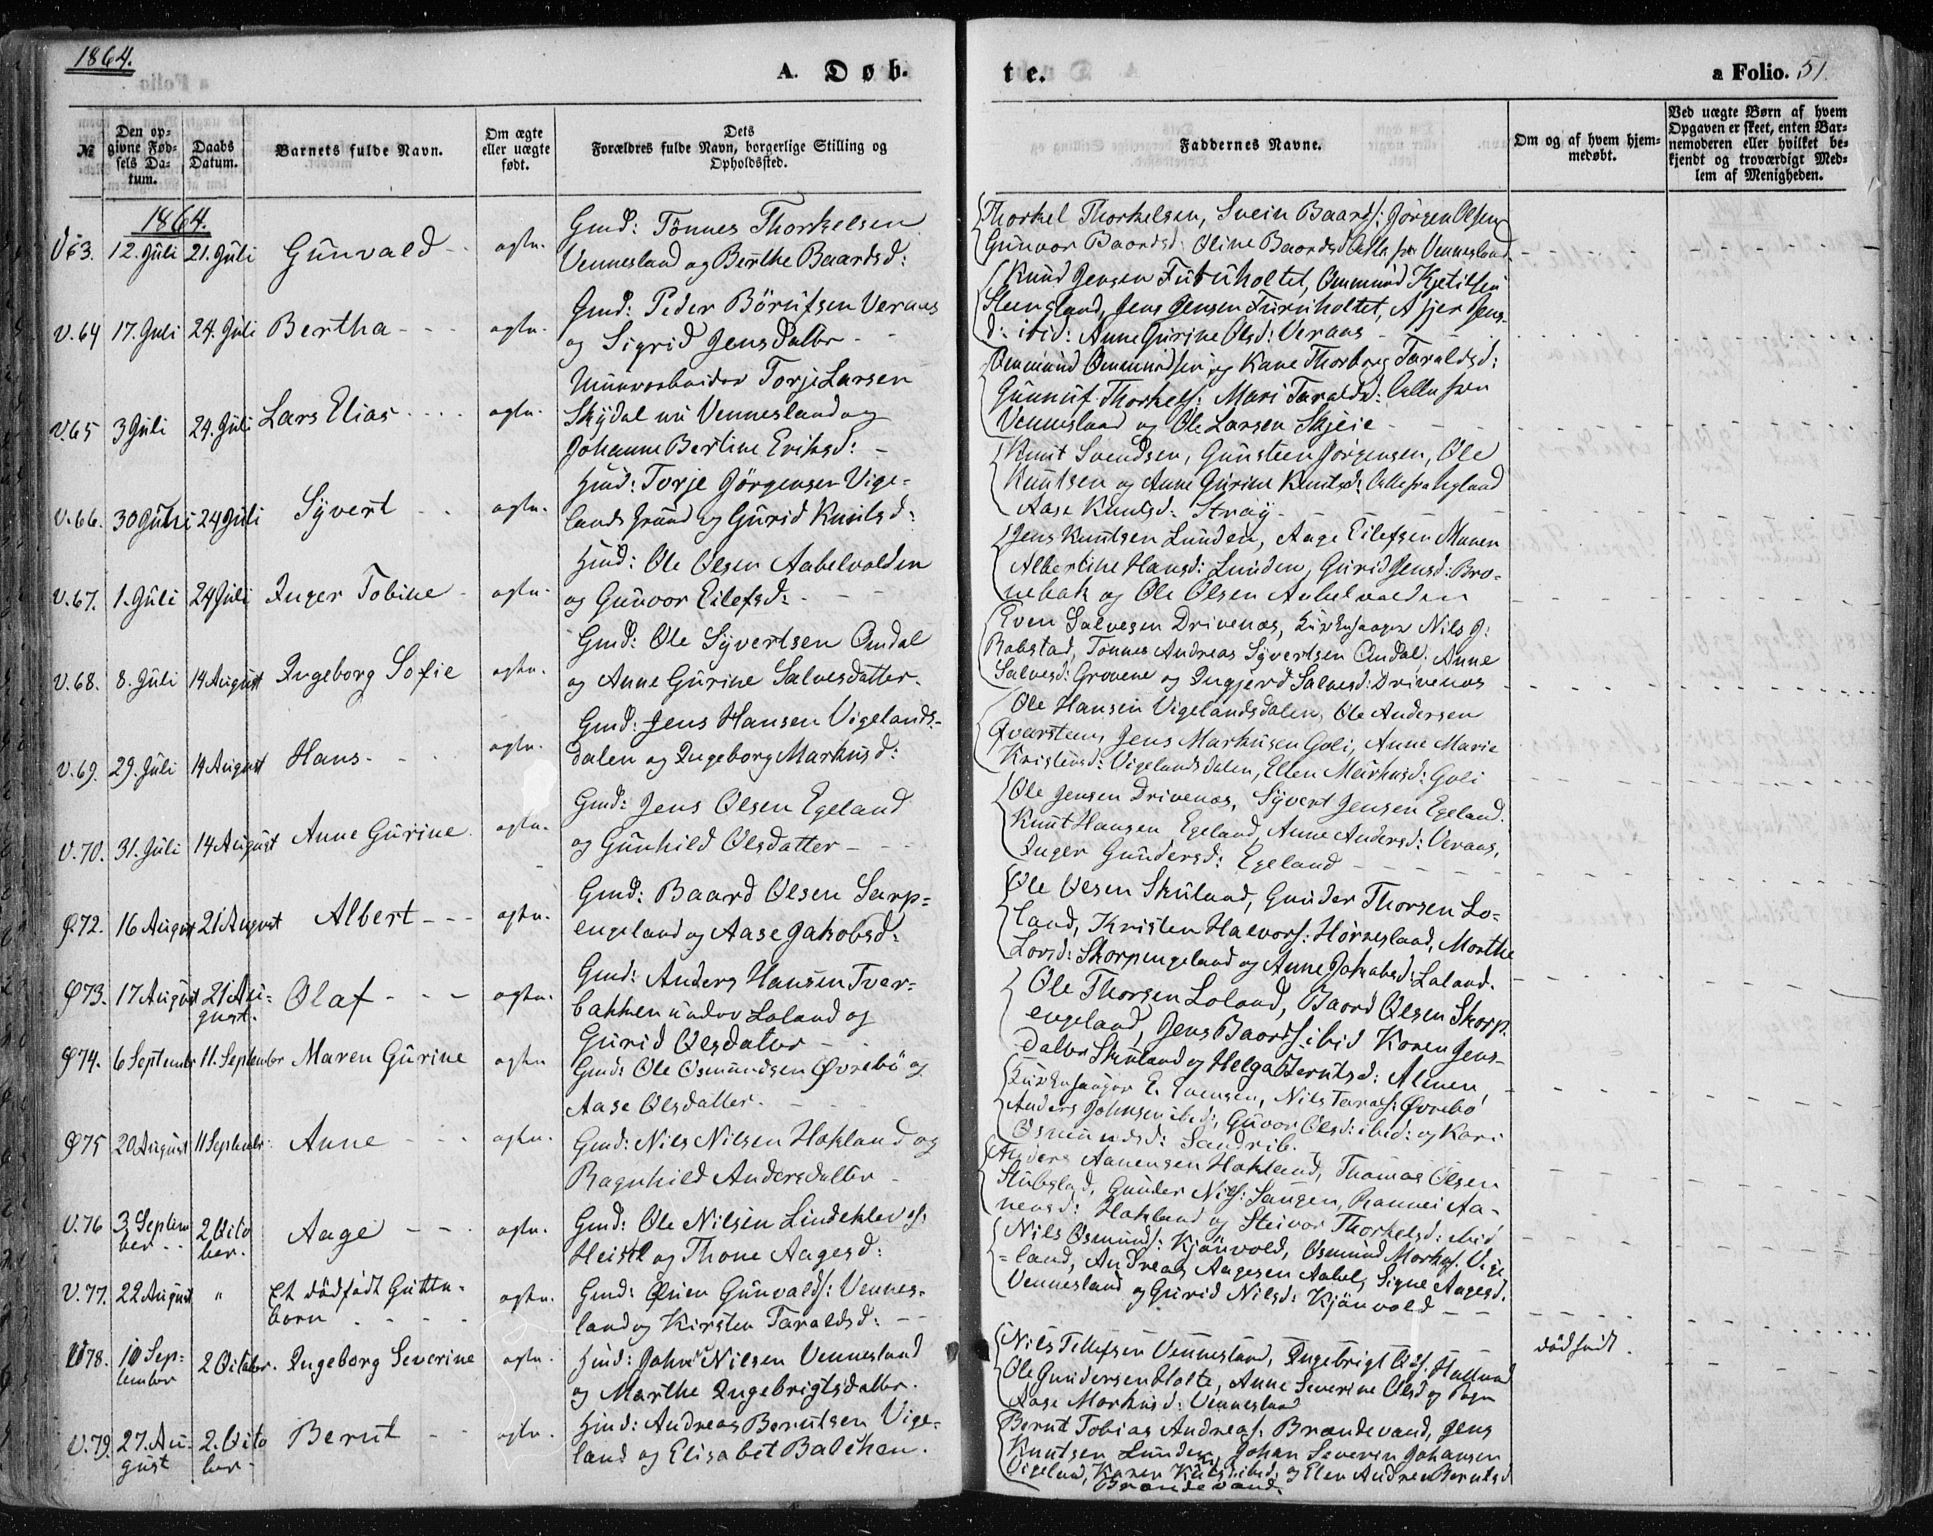 1864.
A. Døb.
te.
a Folio. 51.
№
Den opgivne Fødsels Datum.
Daabs Datum.
Barnets fulde Navn.
Om ægte eller uægte født.
Dets Forældres fulde Navn, borgerlige Stilling og Opholdssted.
Faddernes Navne.
Om og af hvem hjemmedøbt.
Ved uægte Børn af hvem Opgaven er skeet, enten Barnemoderen eller hvilket bekjendt og troværdigt Medlem af Menigheden.
1864.
V63. 12. Juli 21. Juli Gunvald - - ægte.
Gmd: Tönnes Thorkelsen
Vennesland og Berthe Baardsd:
Thorkel Thorkelsen, Svein Baards: Jörgen Olsen
Gunvor Baardsd: Oline Baardsd: Alle fra Vennesland
V.64 17. Juli 24. Juli Bertha - - - ægte.
Gmd: Peder Börufsen Veraas
og Sigrid Jensdatter - -
Knud Jensen Furuholtet, Ommund Kjetilsen
Steinsland, Jens Jensen Furuholtet, Asjer Jens-
d: ibid: Anne Gurine Olsd: Veraas
V.65 3 Juli 24. Juli Lars Elias - - - - ægte.
Muurarbeider Torje Larsen
Skjdal nu Vennesland og
Johanne Bertine Eriksd: -
Ommund Ommundsen og Kone Thorborg Taraldsd:
Gunnuf Thorkels: Mari Taraldsd: Alle fra
Vennesland og Ole Larsen Skjeie
V.66. 30 Juni 24 Juli Syvert - - ægte.
Hmd: Torje Jörgensen Vige-
lands Grund og Gurid Knutsd:
Knut Svendsen, Gunsteen Jörgensen, Ole
Knutsen og Anne Gurine Knutsd: Alle fra Vegland
Aase Knutsd: Stray
V.67. 1. Juli 24 Juli Inger Tobine - ægte.
Hmd: Ole Olsen Aabelvolden
og Gunvor Eilefsd: - - -
Jens Knutsen Lunden, Aage Eilefsen Maren
Albertine Hansd: Lunden, Gurid Jensd: Bro-
nebak og Ole Olsen Aabelvolden
V.68. 8. Juli 14 August Ingeborg Sofie ægte.
Gmd: Ole Syvertsen Omdal
og Anne Gurine Salvesdatter.
Even Salvesen Drivenæs, Kirkesanger Nils J:
Robstad, Tönnes Andreas Syvertsen Omdal, Anne
Salvesd: Grovene og Ingjerd Salvesd: Drivenæs
V.69. 29. Juli 14 August Hans - - ægte.
Gmd: Jens Hansen Vigelands-
dalen og Ingeborg Markusd:
Ole Hansen Vigelandsdalen, Ole Andersen
Qvarsteen, Jens Markusen Goli, Anne Marie
Kristensd: Vigelandsdalen, Ellen Markusd: Goli
V.70. 31. Juli 14 August Anne Gurine. ægte.
Gmd: Jens Olsen Egeland
og Gunhild Olsdatter - - -
Ole Jensen Drivenæs, Syvert Jensen Egeland.
Knut Hansen Egeland, Anne Andersd: Veraas,
Inger Gundersd: Egeland
Ø72. 16 August 21 August Albert - - - ægte.
Gmd: Baard Olsen Sarp-
engeland og Aase Jakobsd:
Ole Olsen Skuland, Gunder Thorsen Lo-
land, Kristen Halvors: Hörnesland, Marthe
Larsd: Skarpengeland og Anne Jakobsd: Loland.
Ø73. 17 August 21 Au-
gust. Olaf - - - ægte.
Gmd: Anders Hansen Tver-
bakken under Loland og
Gurid Olsdatter - -
Ole Thorsen Loland, Baard Olsen Skarp
engeland, Jens Baards: ibid Karen Jens-
datter Skuland og Helga Berntsd: Almen
Ø74. 6 September 11. September Maren Gurine ægte
Gmd: Ole Osmundsen Øvrebö og
Aase Olsdatter. - -
Kirkesanger E. Evensen, Nils Taralds: Øvrebö
Anders Johnsen ibid, Guvor Olsd: ibid: og Kari
Osmundsd: Sandrib.
Ø75 20 August 11 September Anne - - - ægte.
Gmd: Nils Nilsen Hokland og
Ragnhild Andersdatter -
Anders Aanensen Hokland, Thomas Olsen
Stubstad, Gunder Nils: Saugen, Rannei Aa-
nensd: Hokland og Steinor Thorkelsd: ibid
V.76 3. Septem
ber - - 2 Okto
ber. Aage - - ægte.
Gmd: Ole Nilsen Lindeklev
Heistel og Thone Aagesd:
Nils Osmunds: Kjönvold, Osmund Markus: Vige
=land, Andreas Aagesen Aabel, Signe Aagesd:
Vennesland og Gurid Nilsd: Kjönvold
V.77. 22 August " Et dödfödt Gutte-
barn . - - - ægte.
Gmd: Ouen Gunvalds: Vennes-
land og Kirsten Taraldsd: - -
dödfödt.
V78. 10 Sep-
tember 2 October. Ingeborg Severine ægte.
Hmd: John Nilsen Vennesland
og Marthe Ingebrigtsdatter.
Nils Tellefsen Vennesland, Ingebrigt Ols:
Ole Gundersen Holte, Anne Severine Olsd og
Aase Markusd: Vennesland
V.79. 27. Au-
gust 2. Okto
ber - Bernt - - ægte.
Hmd: Andreas Berntsen Vige-
land og Elisabet Balchen.
Bernt Tobias Andreas: Brandevand, Jens
Knutsen Lunden, Johan Severin Johansen
Vigeland, Karen Knutsd: ibid: og Elen Andrea Berntsd
Brandevand.